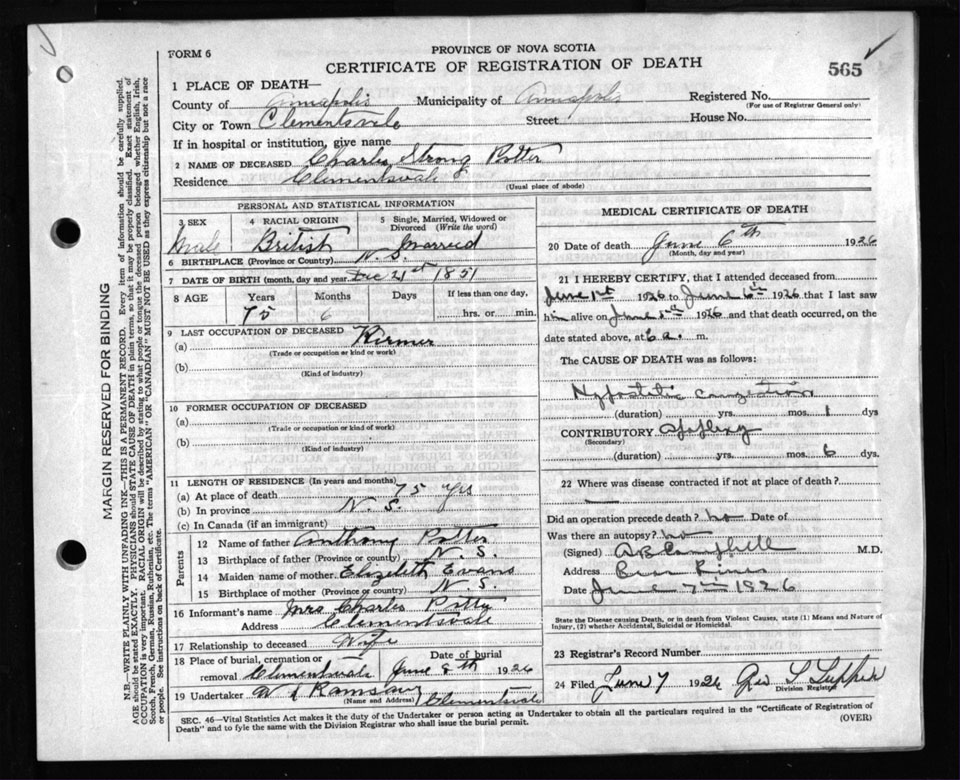 FORM 6
PROVINCE OF NOVA SCOTIA
CERTIFICATE OF REGISTRATION OF DEATH
565
1 PLACE OF DEATH—
County of Annapolis Municipality of Annapolis Registered No.
(For use of Registrar General only)
City or Town Clementsvale Street House No.
If in hospital or institution, give name
2 NAME OF DECEASED Charles Strong Potter
Residence Clementsvale
(Usual place of abode)
PERSONAL AND STATISTICAL INFORMATION
3 SEX 4 RACIAL ORIGIN 5 Single, Married, Widowed or Divorced (Write the word)
Male British Married
6 BIRTHPLACE (Province or Country) N. S.
7 DATE OF BIRTH (month, day and year) Dec 21st 1851
8 AGE Years Months Days If less than one day,
75 hrs. or min.
9 LAST OCCUPATION OF DECEASED
(a)
(Trade or occupation or kind of work)
(b)
(Kind of industry)
10 FORMER OCCUPATION OF DECEASED
(a)
(Trade or occupation or kind of work)
(b)
(Kind of industry)
11 LENGTH OF RESIDENCE (In years and months)
(a) At place of death 75 yrs
(b) In province N. S.
(c) In Canada (if an immigrant)
Parents
12 Name of father Anthony Potter
13 Birthplace of father (Province or country) N. S.
14 Maiden name of mother Elizabeth Evans
15 Birthplace of mother (Province or country) N. S.
16 Informant's name Mrs Charles Potter
Address Clementsvale
17 Relationship to deceased Wife
18 Place of burial, cremation or removal Clementsvale Date of burial June 8th 1926
19 Undertaker Ramsay
(Name and Address) Clementsvale
MEDICAL CERTIFICATE OF DEATH
20 Date of death June 6th 1926
(Month, day and year)
21 I HEREBY CERTIFY, that I attended deceased from
June 1st 1926 to June 6th 1926 that I last saw
him alive on June 5th 1926 and that death occurred, on the
date stated above, at 6 a. m.
The CAUSE OF DEATH was as follows:
Hypostatic congestion
(duration) yrs. mos. 1 dys
CONTRIBUTORY
(Secondary)
(duration) yrs. mos. 6 dys.
22 Where was disease contracted if not at place of death?
Did an operation precede death? no Date of
Was there an autopsy? no
(Signed) Campbell M.D.
Address Bear River
Date June 7th 1926
State the Disease causing Death, or in death from Violent Causes, state (1) Means and Nature of
Injury, (2) whether Accidental, Suicidal or Homicidal.
23 Registrar's Record Number
24 Filed June 7 1926
Division Registrar
SEC. 46—Vital Statistics Act makes it the duty of the Undertaker or person acting as Undertaker to obtain all the particulars required in the "Certificate of Registration of
Death" and to fyle the same with the Division Registrar who shall issue the burial permit.
(OVER)
MARGIN RESERVED FOR BINDING
N.B.—WRITE PLAINLY WITH UNFADING INK—THIS IS A PERMANENT RECORD. Every item of information should be carefully supplied.
AGE should be stated EXACTLY. PHYSICIANS should STATE CAUSE OF DEATH in plain terms, so that it may be properly classified. Exact statement of
OCCUPATION is very important. RACIAL ORIGIN will be described by stating to what people or tongue the deceased person belonged whether English, Irish,
Scotch, French, German, Russian, Ruthenian, etc. The terms "AMERICAN" OR "CANADIAN" MUST NOT BE USED as they express citizenship but not a race
or people. See instructions on back of Certificate.